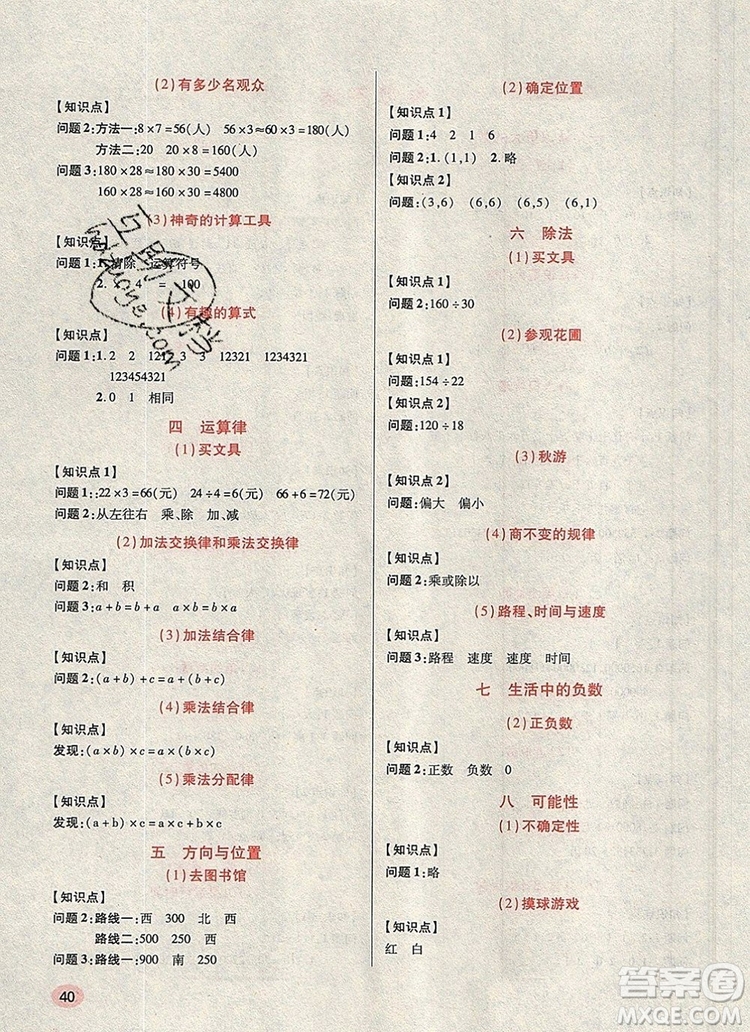 (2)有多少名观众
【知识点】
问题2:方法一:8×7=56(人) 56×3≈60×3=180(人)
方法二:20 20×8=160(人)
问题3:180×28≈180×30=5400
160×28≈160×30=4800
(3)神奇的计算工具
【知识点】
问题1:1.清除 运算符号
= 100
(4)有趣的算式
【知识点】
问题1:1.2 2 121 3 3 12321 1234321
123454321
2.0 1 相同
四 运算律
(1)买文具
【知识点1】
问题1:22×3=66(元) 24÷4=6(元) 66+6=72(元)
问题2:从左往右 乘、除 加、减
(2)加法交换律和乘法交换律
【知识点】
问题2:和 积
问题3:a+b=b+a a×b=b×a
(3)加法结合律
【知识点】
问题2:(a+b)+c=a+(b+c)
(4)乘法结合律
【知识点】
发现:(a×b)×c=a×(b×c)
(5)乘法分配律
【知识点】
发现:(a+b)×c=a×c+b×c
五 方向与位置
(1)去图书馆
【知识点】
问题2:路线一:西 300 北 西
路线二:500 250 西
问题3:路线一:900 南 250
40
(2)确定位置
【知识点1】
问题1:4 2 1 6
问题2:1.(1,1) 2.略
【知识点2】
(3,6) (6,6) (6,5) (6,1)
六 除法
(1)买文具
【知识点2】
问题2:160÷30
(2)参观花圃
【知识点1】
问题:154÷22
【知识点2】
问题:120÷18
(3)秋游
【知识点】
问题:偏大 偏小
(4)商不变的规律
【知识点】
问题2:乘或除以
(5)路程、时间与速度
【知识点】
问题3:路程 速度 速度 时间
七 生活中的负数
(2)正负数
【知识点】
问题2:正数 负数 0
八 可能性
(1)不确定性
【知识点】
问题1:略
(2)摸球游戏
【知识点】
红 白
答案圈
MXQE.COM